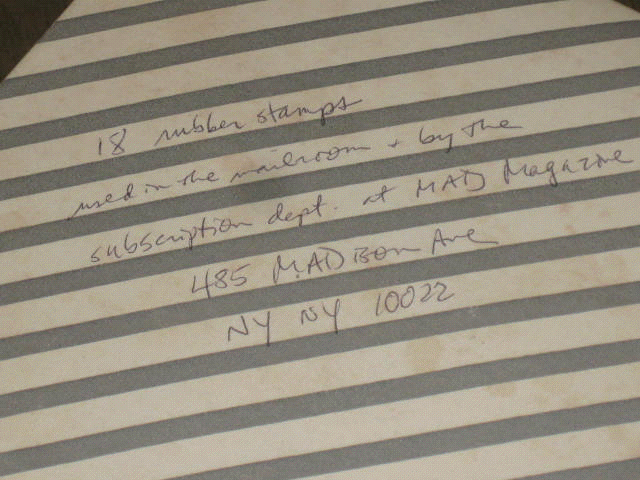 18 rubber stamps
used in the mailroom + by the
subscription dept. at MAD Magazine
485 MADISON Ave
NY NY 10022